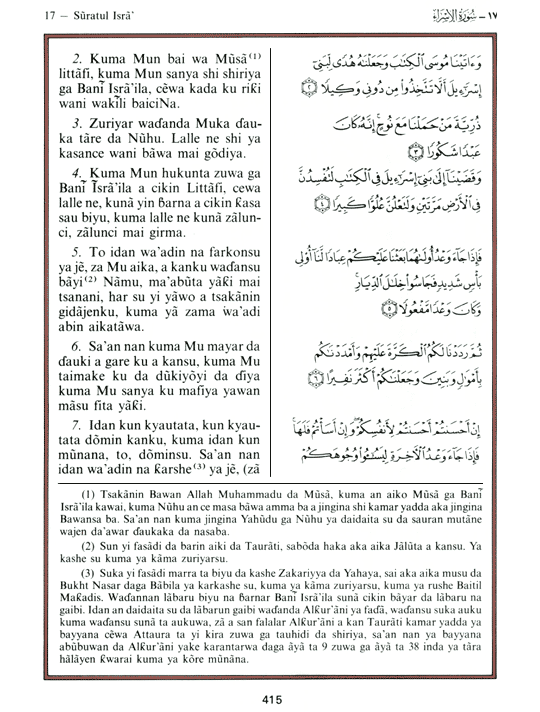 17 — Sūratul Isrā’
١٧ – سُورَةُ الإِسْرَاءِ
2. Kuma Mun bai wa Mūsā(1)
littāfi, kuma Mun sanya shi shiriya
ga Banĩ Isrā’ila, cēwa kada ku riƙi
wani wakĩli baiciNa.
3. Zuriyar waɗanda Muka ɗau-
ka tāre da Nūhu. Lalle ne shi ya
kasance wani bāwa mai gōdiya.
4. Kuma Mun hukunta zuwa ga
Banĩ Ĩsrā’ila a cikin Littāfi, cewa
lalle ne, kunā yin ɓarna a cikin ƙasa
sau biyu, kuma lalle ne kunā zālun-
ci, zālunci mai girma.
5. To idan wa’adin na farkonsu
ya jē, za Mu aika, a kanku waɗansu
bāyi(2) Nāmu, ma’abūta yāƙi mai
tsanani, har su yi yāwo a tsakānin
gidājenku, kuma yā zama wa’adi
abin aikatāwa.
6. Sa’an nan kuma Mu mayar da
ɗauki a gare ku a kansu, kuma Mu
taimake ku da dūkiyōyi da ɗiya
kuma Mu sanya ku mafiya yawan
māsu fita yāƙi.
7. Idan kun kyautata, kun kyau-
tata dōmin kanku, kuma idan kun
mūnana, to, dōminsu. Sa’an nan
idan wa’adin na ƙarshe(3) ya jē, (zā
وَءَاتَيْنَا مُوسَى ٱلْكِتَٰبَ وَجَعَلْنَٰهُ هُدًى لِّبَنِىٓ
إِسْرَٰٓءِيلَ أَلَّا تَتَّخِذُوا۟ مِن دُونِى وَكِيلًا ﴿٢﴾
ذُرِّيَّةَ مَنْ حَمَلْنَا مَعَ نُوحٍ إِنَّهُۥ كَانَ
عَبْدًا شَكُورًا ﴿٣﴾
وَقَضَيْنَآ إِلَىٰ بَنِىٓ إِسْرَٰٓءِيلَ فِى ٱلْكِتَٰبِ لَتُفْسِدُنَّ
فِى ٱلْأَرْضِ مَرَّتَيْنِ وَلَتَعْلُنَّ عُلُوًّا كَبِيرًا ﴿٤﴾
فَإِذَا جَآءَ وَعْدُ أُولَىٰهُمَا بَعَثْنَا عَلَيْكُمْ عِبَادًا لَّنَآ أُو۟لِى
بَأْسٍ شَدِيدٍ فَجَاسُوا۟ خِلَٰلَ ٱلدِّيَارِ
وَكَانَ وَعْدًا مَّفْعُولًا ﴿٥﴾
ثُمَّ رَدَدْنَا لَكُمُ ٱلْكَرَّةَ عَلَيْهِمْ وَأَمْدَدْنَٰكُم
بِأَمْوَٰلٍ وَبَنِينَ وَجَعَلْنَٰكُمْ أَكْثَرَ نَفِيرًا ﴿٦﴾
إِنْ أَحْسَنتُمْ أَحْسَنتُمْ لِأَنفُسِكُمْ وَإِنْ أَسَأْتُمْ فَلَهَا
فَإِذَا جَآءَ وَعْدُ ٱلْءَاخِرَةِ لِيَسُۥٓـُٔوا۟ وُجُوهَكُمْ
(1) Tsakānin Bawan Allah Muhammadu da Mūsā, kuma an aiko Mūsā ga Banĩ
Isrā’ila kawai, kuma Nūhu an ce masa bāwa amma ba a jingina shi kamar yadda aka jingina
Bawansa ba. Sa’an nan kuma jingina Yahūdu ga Nūhu ya daidaita su da sauran mutāne
wajen da’awar ɗaukaka da nasaba.
(2) Sun yi fasādi da barin aiki da Taurāti, sabōda haka aka aika Jālūta a kansu. Ya
kashe su kuma ya kāma zuriyarsu.
(3) Suka yi fasādi marra ta biyu da kashe Zakariyya da Yahaya, sai aka aika musu da
Bukht Nasar daga Bābila ya karkashe su, kuma ya kāma zuriyarsu, kuma ya rushe Baitil
Maƙadis. Waɗannan lābaru biyu na ɓarnar Banĩ Isrā’ila sunā cikin bāyar da lābaru na
gaibi. Idan an daidaita su da lābarun gaibi waɗanda Alƙur’āni ya faɗā, waɗansu suka auku
kuma waɗansu sunā ta aukuwa, zā a san falalar Alƙur’āni a kan Taurāti kamar yadda ya
bayyana cēwa Attaura ta yi kira zuwa ga tauhidi da shiriya, sa’an nan ya bayyana
abūbuwan da Alƙur’āni yake karantarwa daga āyā ta 9 zuwa ga āyā ta 38 inda ya tāra
hālāyen ƙwarai kuma ya kōre mūnāna.
415